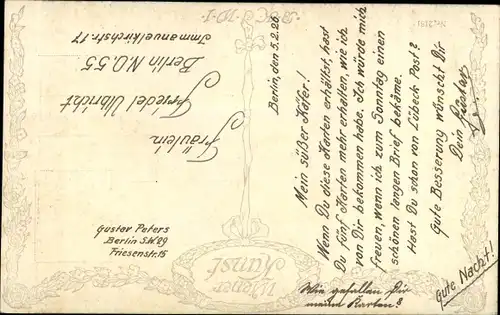 Berlin, den 5.2.26.
Mein süßer Käfer!
Wenn Du diese Karten erhältst, hast
Du fünf Karten mehr erhalten, wie ich
von Dir bekommen habe. Ich würde mich
freuen, wenn ich zum Sonntag einen
schönen langen Brief bekäme.
Hast Du schon von Lübeck Post?
Gute Besserung wünscht Dir
Dein Gustav
Gute Nacht!
Wie gefallen Dir
meine Karten?
Fräulein
Friedel Ulbricht
Berlin N.O.55.
Immanuelkirchstr. 17
Gustav Peters
Berlin S.W.29
Friesenstr. 15
Wiener
Kunst